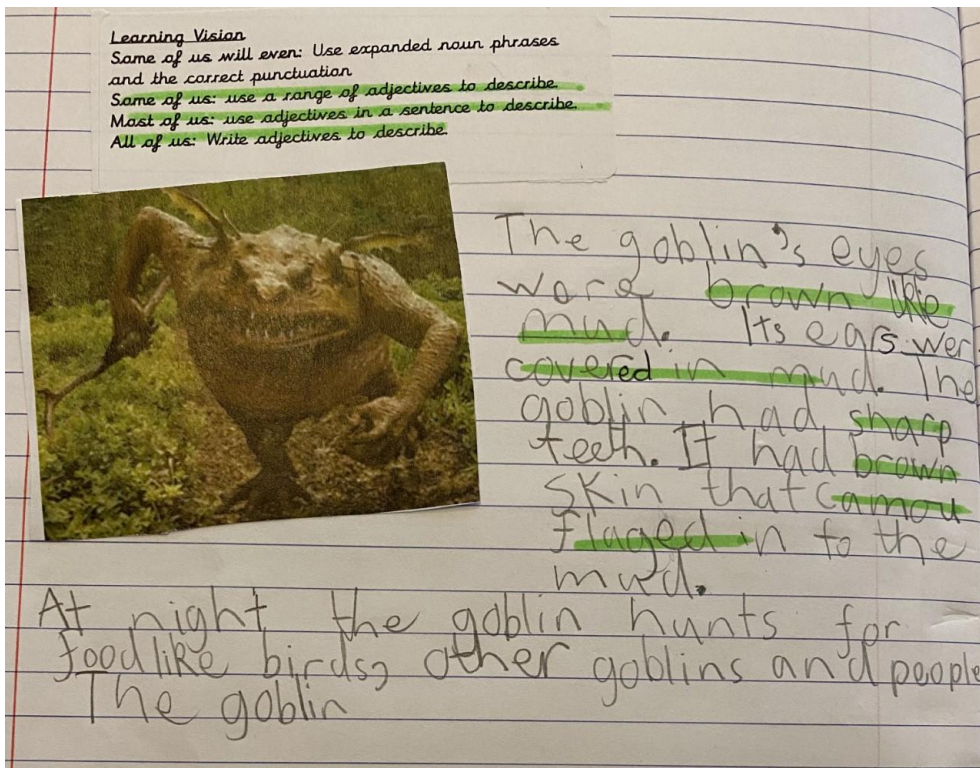 Learning Vision
Some of us will even: Use expanded noun phrases
and the correct punctuation
Some of us: use a range of adjectives to describe
Most of us: use adjectives in a sentence to describe
All of us: Write adjectives to describe.
The goblin's eyes
ware brown like
mud. Its ears wer
covered in mud. The
goblin had sharp
teeth. It had brown
skin that camou
flaged in to the
mud.
At night the goblin hunts for
food like birds, other goblins and people
The goblin